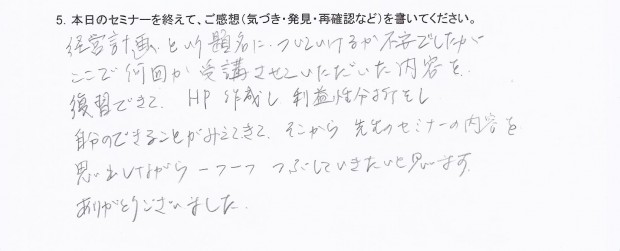 5. 本日のセミナーを終えて、ご感想（気づき・発見・再確認など）を書いてください。
経営計画 という題名に ついていけるか不安でしたが
ここで何回か受講させていただいた内容を
復習できて、HP作成し 利益性分析をし
自分のできることがみえてきて、そこから 先生のセミナーの内容を
思い出しながら 一つ一つ つぶしていきたいと思います。
ありがとうございました。